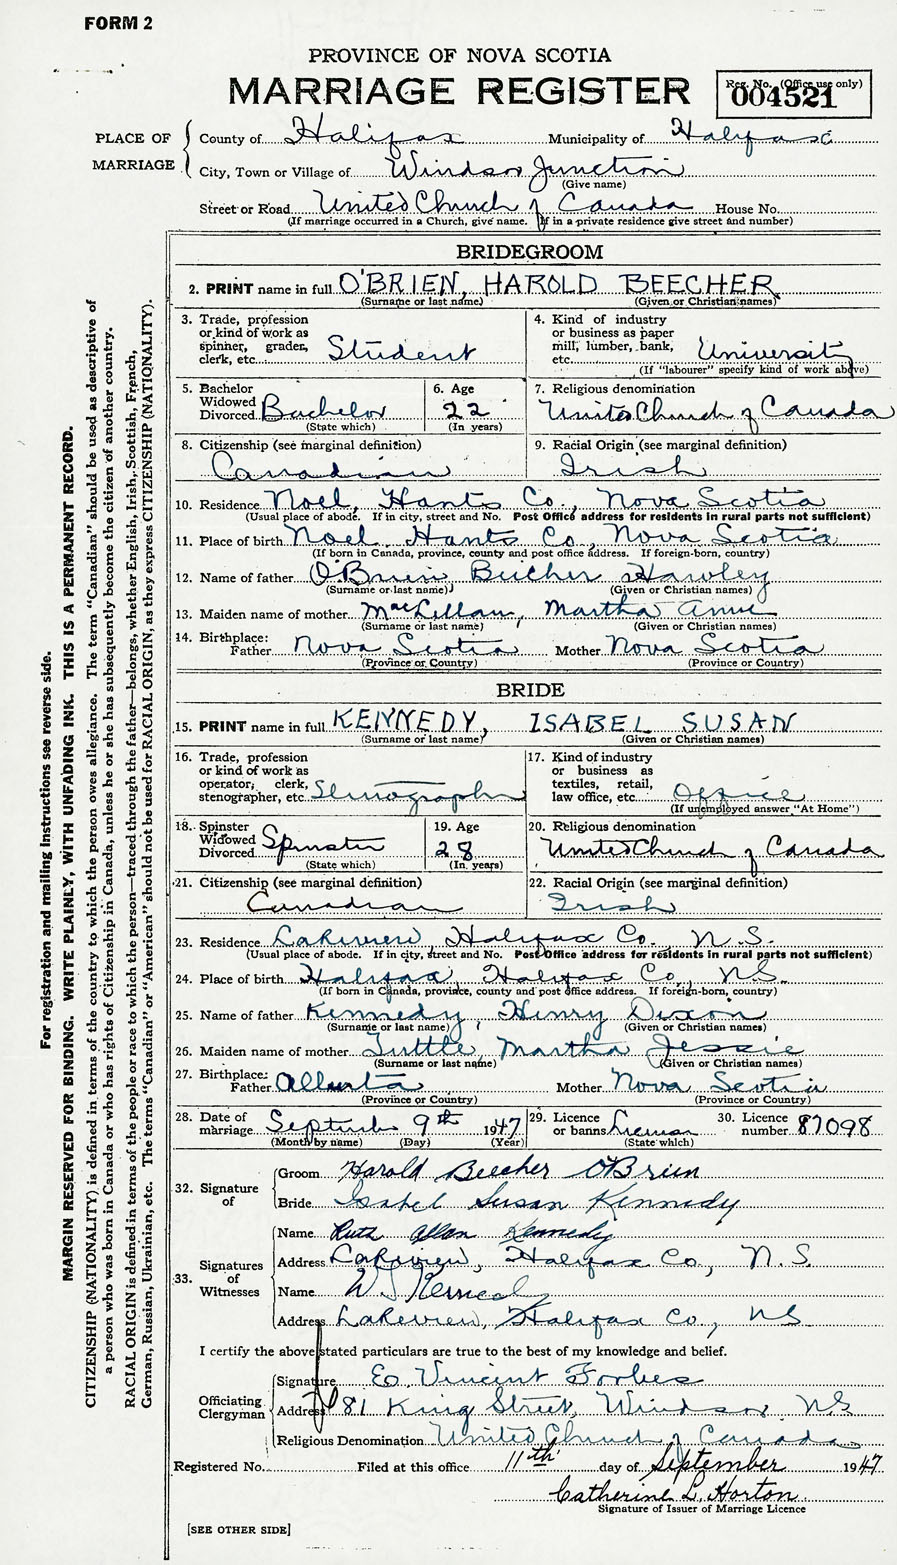 FORM 2
PROVINCE OF NOVA SCOTIA
MARRIAGE REGISTER
Reg. No. (Office use only)
004521
PLACE OF MARRIAGE
County of Halifax Municipality of Halifax
City, Town or Village of Windsor Junction
(Give name)
Street or Road United Church of Canada House No.
(If marriage occurred in a Church, give name. If in a private residence give street and number)
BRIDEGROOM
2. PRINT name in full O'BRIEN, HAROLD BEECHER
(Surname or last name) (Given or Christian names)
3. Trade, profession or kind of work as spinner, grader, clerk, etc. Student
4. Kind of industry or business as paper mill, lumber, bank, etc. University
(If "labourer" specify kind of work above)
5. Bachelor Widowed Divorced Bachelor
(State which)
6. Age 22
(In years)
7. Religious denomination
United Church of Canada
8. Citizenship (see marginal definition)
Canadian
9. Racial Origin (see marginal definition)
Irish
10. Residence Noel, Hants Co., Nova Scotia
(Usual place of abode. If in city, street and No. Post Office address for residents in rural parts not sufficient)
11. Place of birth Noel Hants Co., Nova Scotia
(If born in Canada, province, county and post office address. If foreign-born, country)
12. Name of father O'Brien, Beecher Hawley
(Surname or last name) (Given or Christian names)
13. Maiden name of mother MacLellan, Martha Anne
(Surname or last name) (Given or Christian names)
14. Birthplace: Father Nova Scotia Mother Nova Scotia
(Province or Country) (Province or Country)
BRIDE
15. PRINT name in full KENNEDY, ISABEL SUSAN
(Surname or last name) (Given or Christian names)
16. Trade, profession or kind of work as operator, clerk, stenographer, etc. Stenographer
17. Kind of industry or business as textiles, retail, law office, etc. Office
(If unemployed answer "At Home")
18. Spinster Widowed Divorced Spinster
(State which)
19. Age 28
(In years)
20. Religious denomination
United Church of Canada
21. Citizenship (see marginal definition)
Canadian
22. Racial Origin (see marginal definition)
Irish
23. Residence Lakeview, Halifax Co. N.S.
(Usual place of abode. If in city, street and No. Post Office address for residents in rural parts not sufficient)
24. Place of birth Halifax, Halifax Co., N.S.
(If born in Canada, province, county and post office address. If foreign-born, country)
25. Name of father Kennedy, Henry Dixon
(Surname or last name) (Given or Christian names)
26. Maiden name of mother Tuttle, Martha Jessie
(Surname or last name) (Given or Christian names)
27. Birthplace: Father Alberta Mother Nova Scotia
(Province or Country) (Province or Country)
28. Date of marriage September 9th 1947
(Month by name) (Day) (Year)
29. Licence or banns License
(State which)
30. Licence number 87098
32. Signature of
Groom Harold Beecher O'Brien
Bride Isabel Susan Kennedy
33. Signatures of Witnesses
Name Ruth Allan Kennedy
Address Lakeview, Halifax Co., N.S.
Name W J Kennedy
Address Lakeview, Halifax Co., NS
I certify the above stated particulars are true to the best of my knowledge and belief.
Officiating Clergyman
Signature E Vincent Forbes
Address 81 King Street, Windsor NS
Religious Denomination United Church of Canada
Registered No. Filed at this office 11th day of September 1947
Catherine L. Horton
Signature of Issuer of Marriage Licence
[SEE OTHER SIDE]
For registration and mailing instructions see reverse side.
MARGIN RESERVED FOR BINDING. WRITE PLAINLY, WITH UNFADING INK. THIS IS A PERMANENT RECORD.
CITIZENSHIP (NATIONALITY) is defined in terms of the country to which the person owes allegiance. The term "Canadian" should be used as descriptive of
a person who was born in Canada or who has rights of Citizenship in Canada, unless he or she has subsequently become the citizen of another country.
RACIAL ORIGIN is defined in terms of the people or race to which the person—traced through the father—belongs, whether English, Irish, Scottish, French,
German, Russian, Ukrainian, etc. The terms "Canadian" or "American" should not be used for RACIAL ORIGIN, as they express CITIZENSHIP (NATIONALITY).